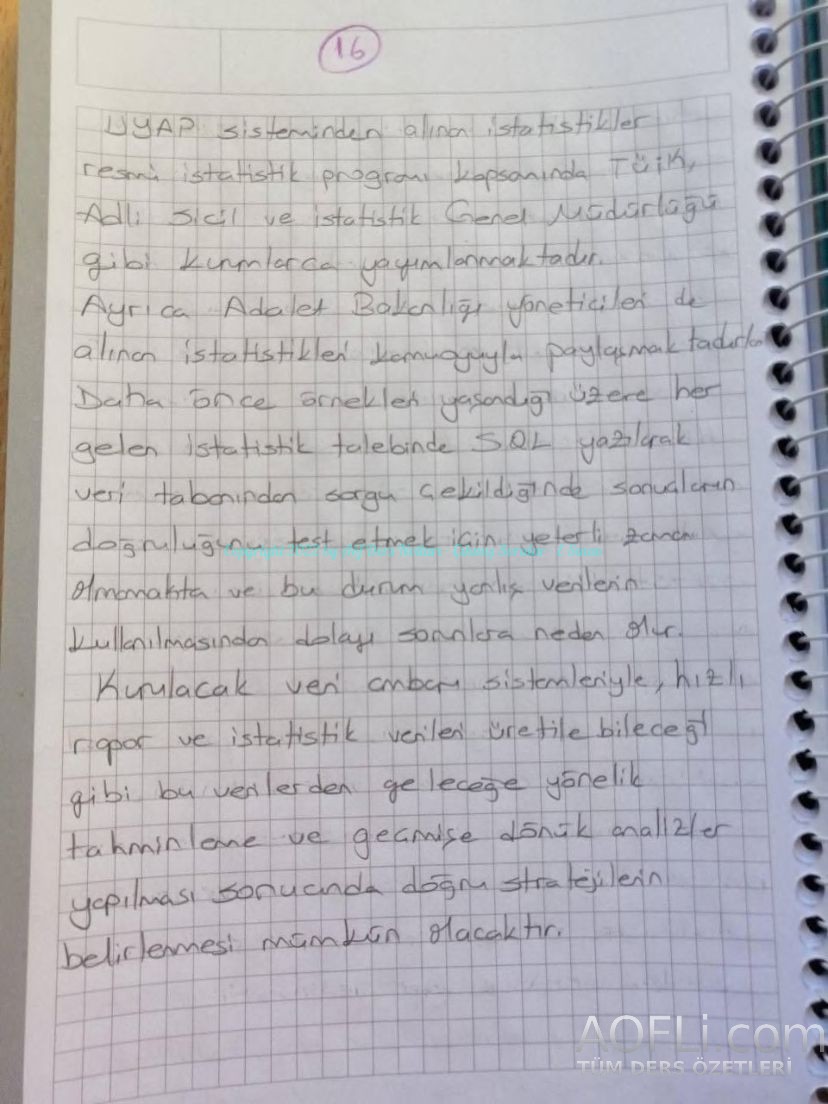 16
UYAP sisteminden alınan istatistikler
resmi istatistik programı kapsamında TÜİK,
Adli Sicil ve istatistik Genel Müdürlüğü
gibi kurumlarca yayımlanmaktadır.
Ayrıca Adalet Bakanlığı yöneticileri de
alınan istatistikleri kamuoyuyla paylaşmaktadırlar
Daha önce örnekleri yaşandığı üzere her
gelen istatistik talebinde SQL yazılarak
veri tabanından sorgu çekildiğinde sonuçların
doğruluğunu test etmek için yeterli zaman
olmamakta ve bu durum yanlış verilerin
kullanılmasından dolayı sorunlara neden olur.
Kurulacak veri ambarı sistemleriyle, hızlı
rapor ve istatistik verileri üretile bileceği
gibi bu verilerden geleceğe yönelik
tahminleme ve geçmişe dönük analizler
yapılması sonucunda doğru stratejilerin
belirlenmesi mümkün olacaktır.
AOFLi.com
TÜM DERS ÖZETLERİ